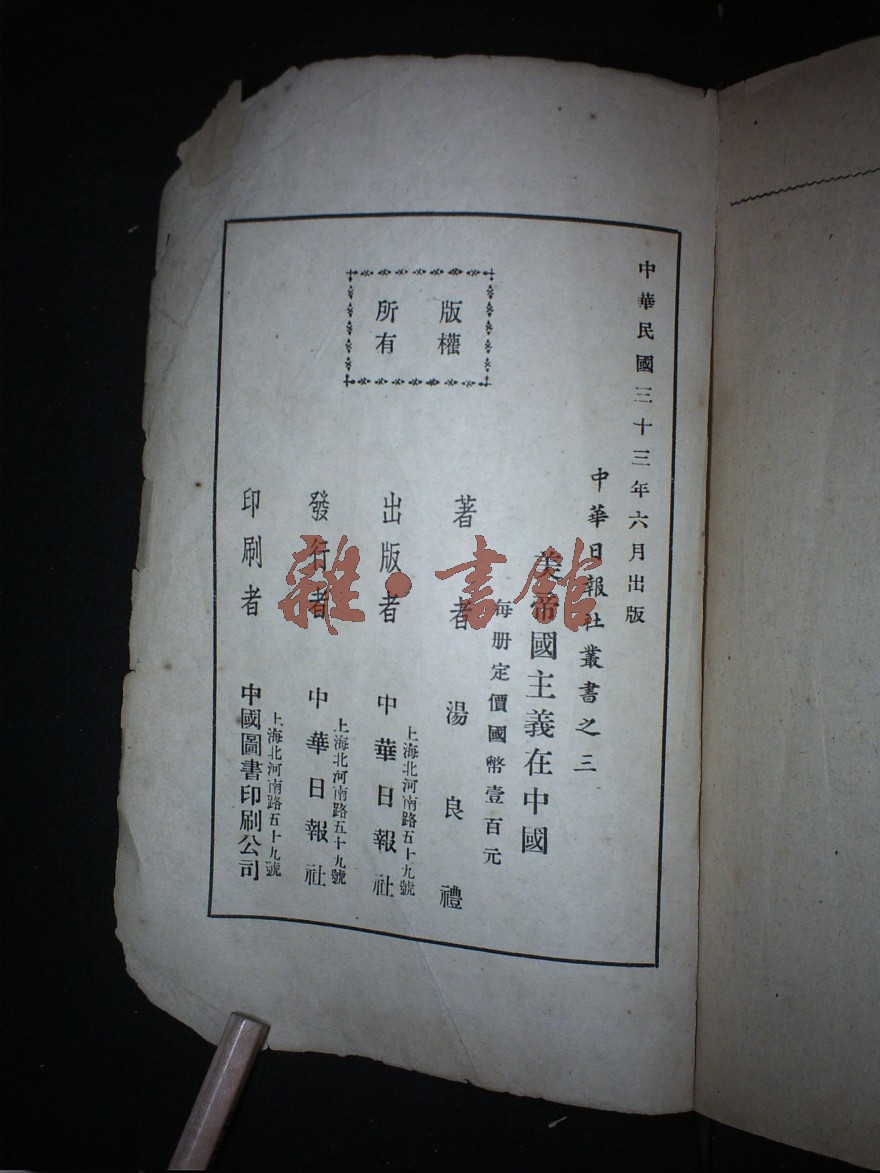 中華民國三十三年六月出版
中華日報社叢書之三
美帝國主義在中國
每册定價國幣壹百元
版權
所有
著者 湯良禮
出版者 上海北河南路五十九號
中華日報社
發行者 上海北河南路五十九號
中華日報社
印刷者 上海北河南路五十九號
中國圖書印刷公司
雜·書館